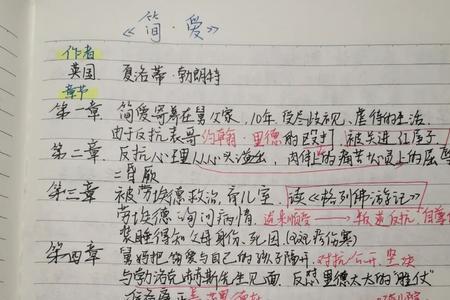 《简·爱》
作者
英国 夏洛蒂·勃朗特
章节
第一章 简爱寄养在舅父家,10年受尽歧视,虐待的生活.
由于反抗表哥约翰·里德的殴打 被关进红屋子
第二章. 反抗心理 肉体上的痛苦心灵上的屈
第三章 被劳埃德救治,育儿室. 读《格列佛游记》
劳埃德询问病情. 逆来顺受 → 叛逆反抗
装睡得知父母身份、死因.
第四章 舅妈把简爱与自己的孩子隔开. 对抗/公开 坚决
与勃洛克赫斯先生见面 反 里德太太的"胜仗"